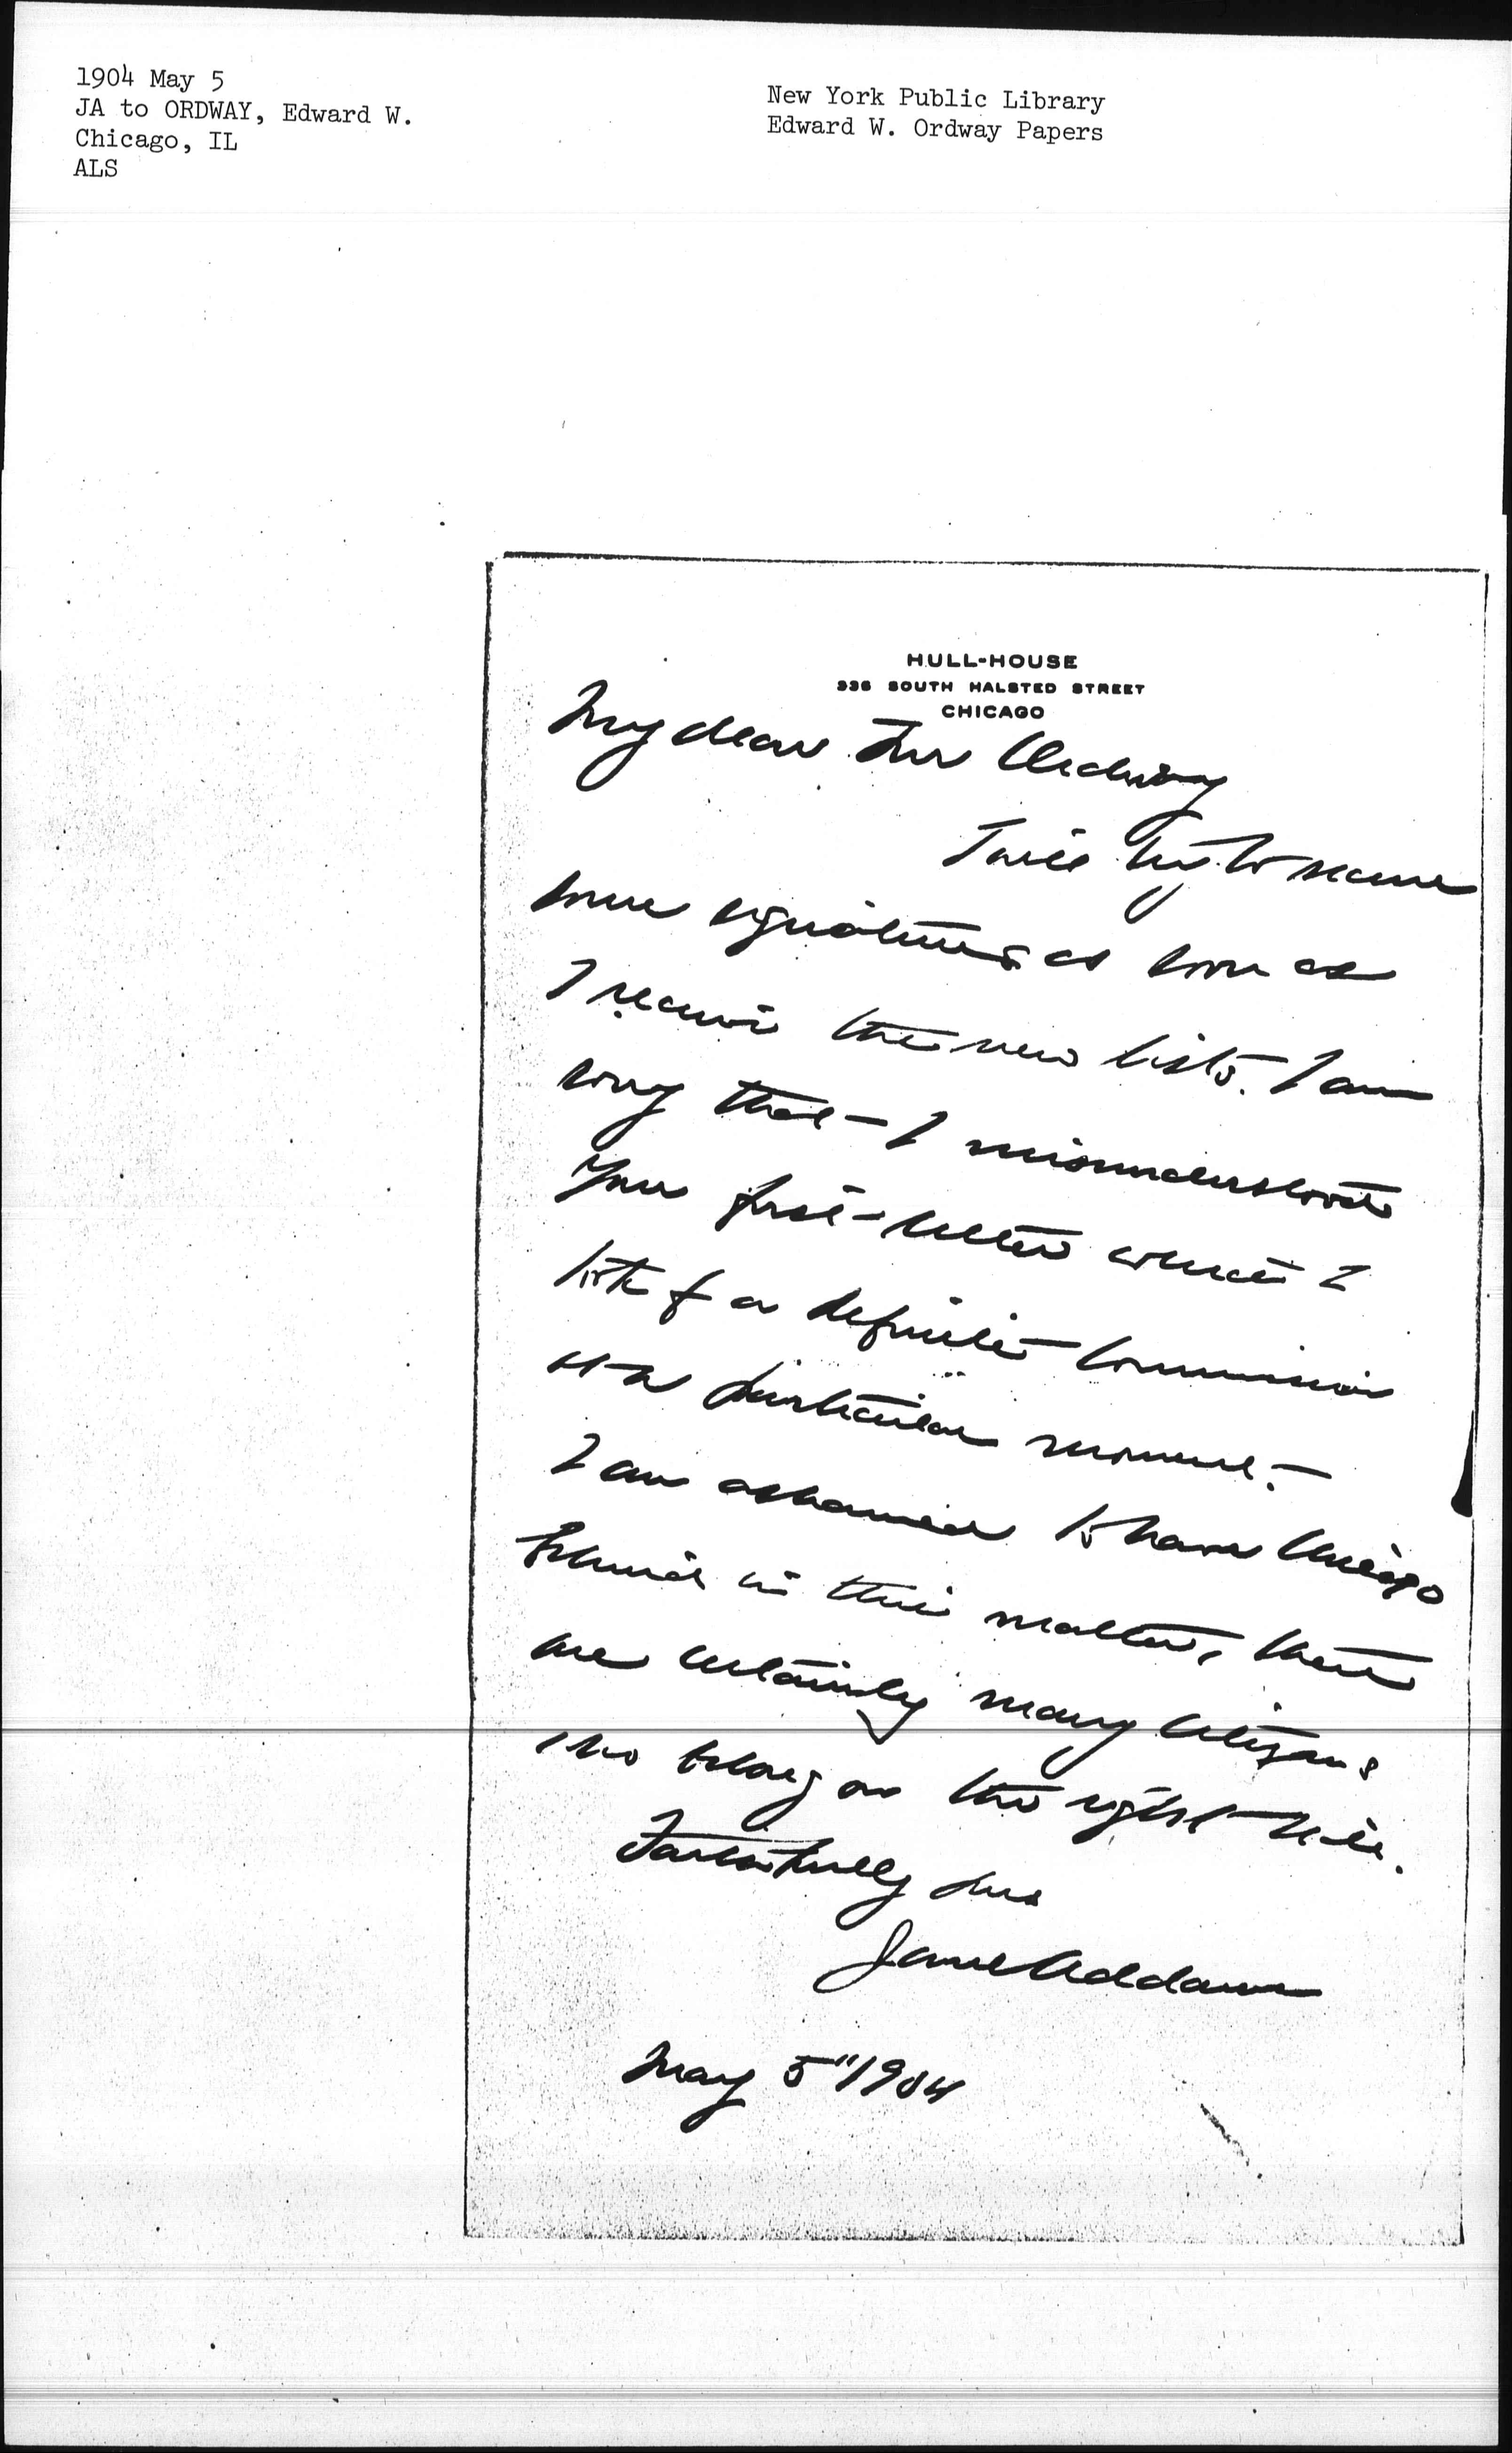 1904 May 5
JA to ORDWAY, Edward W.
Chicago, IL
ALS
New York Public Library
Edward W. Ordway Papers
HULL-HOUSE
335 SOUTH HALSTED STREET
CHICAGO
My dear Mr Ordway
I will try to secure
some signatures as soon as
I receive the new lists. I am
sorry that I misunderstood
your first letter which I
took for a definite commission
at a particular moment.
I am ashamed to have Chicago
behind in this matter, there
are certainly many citizens
who belong on the right side.
Faithfully yours
Jane Addams
May 5" 1904